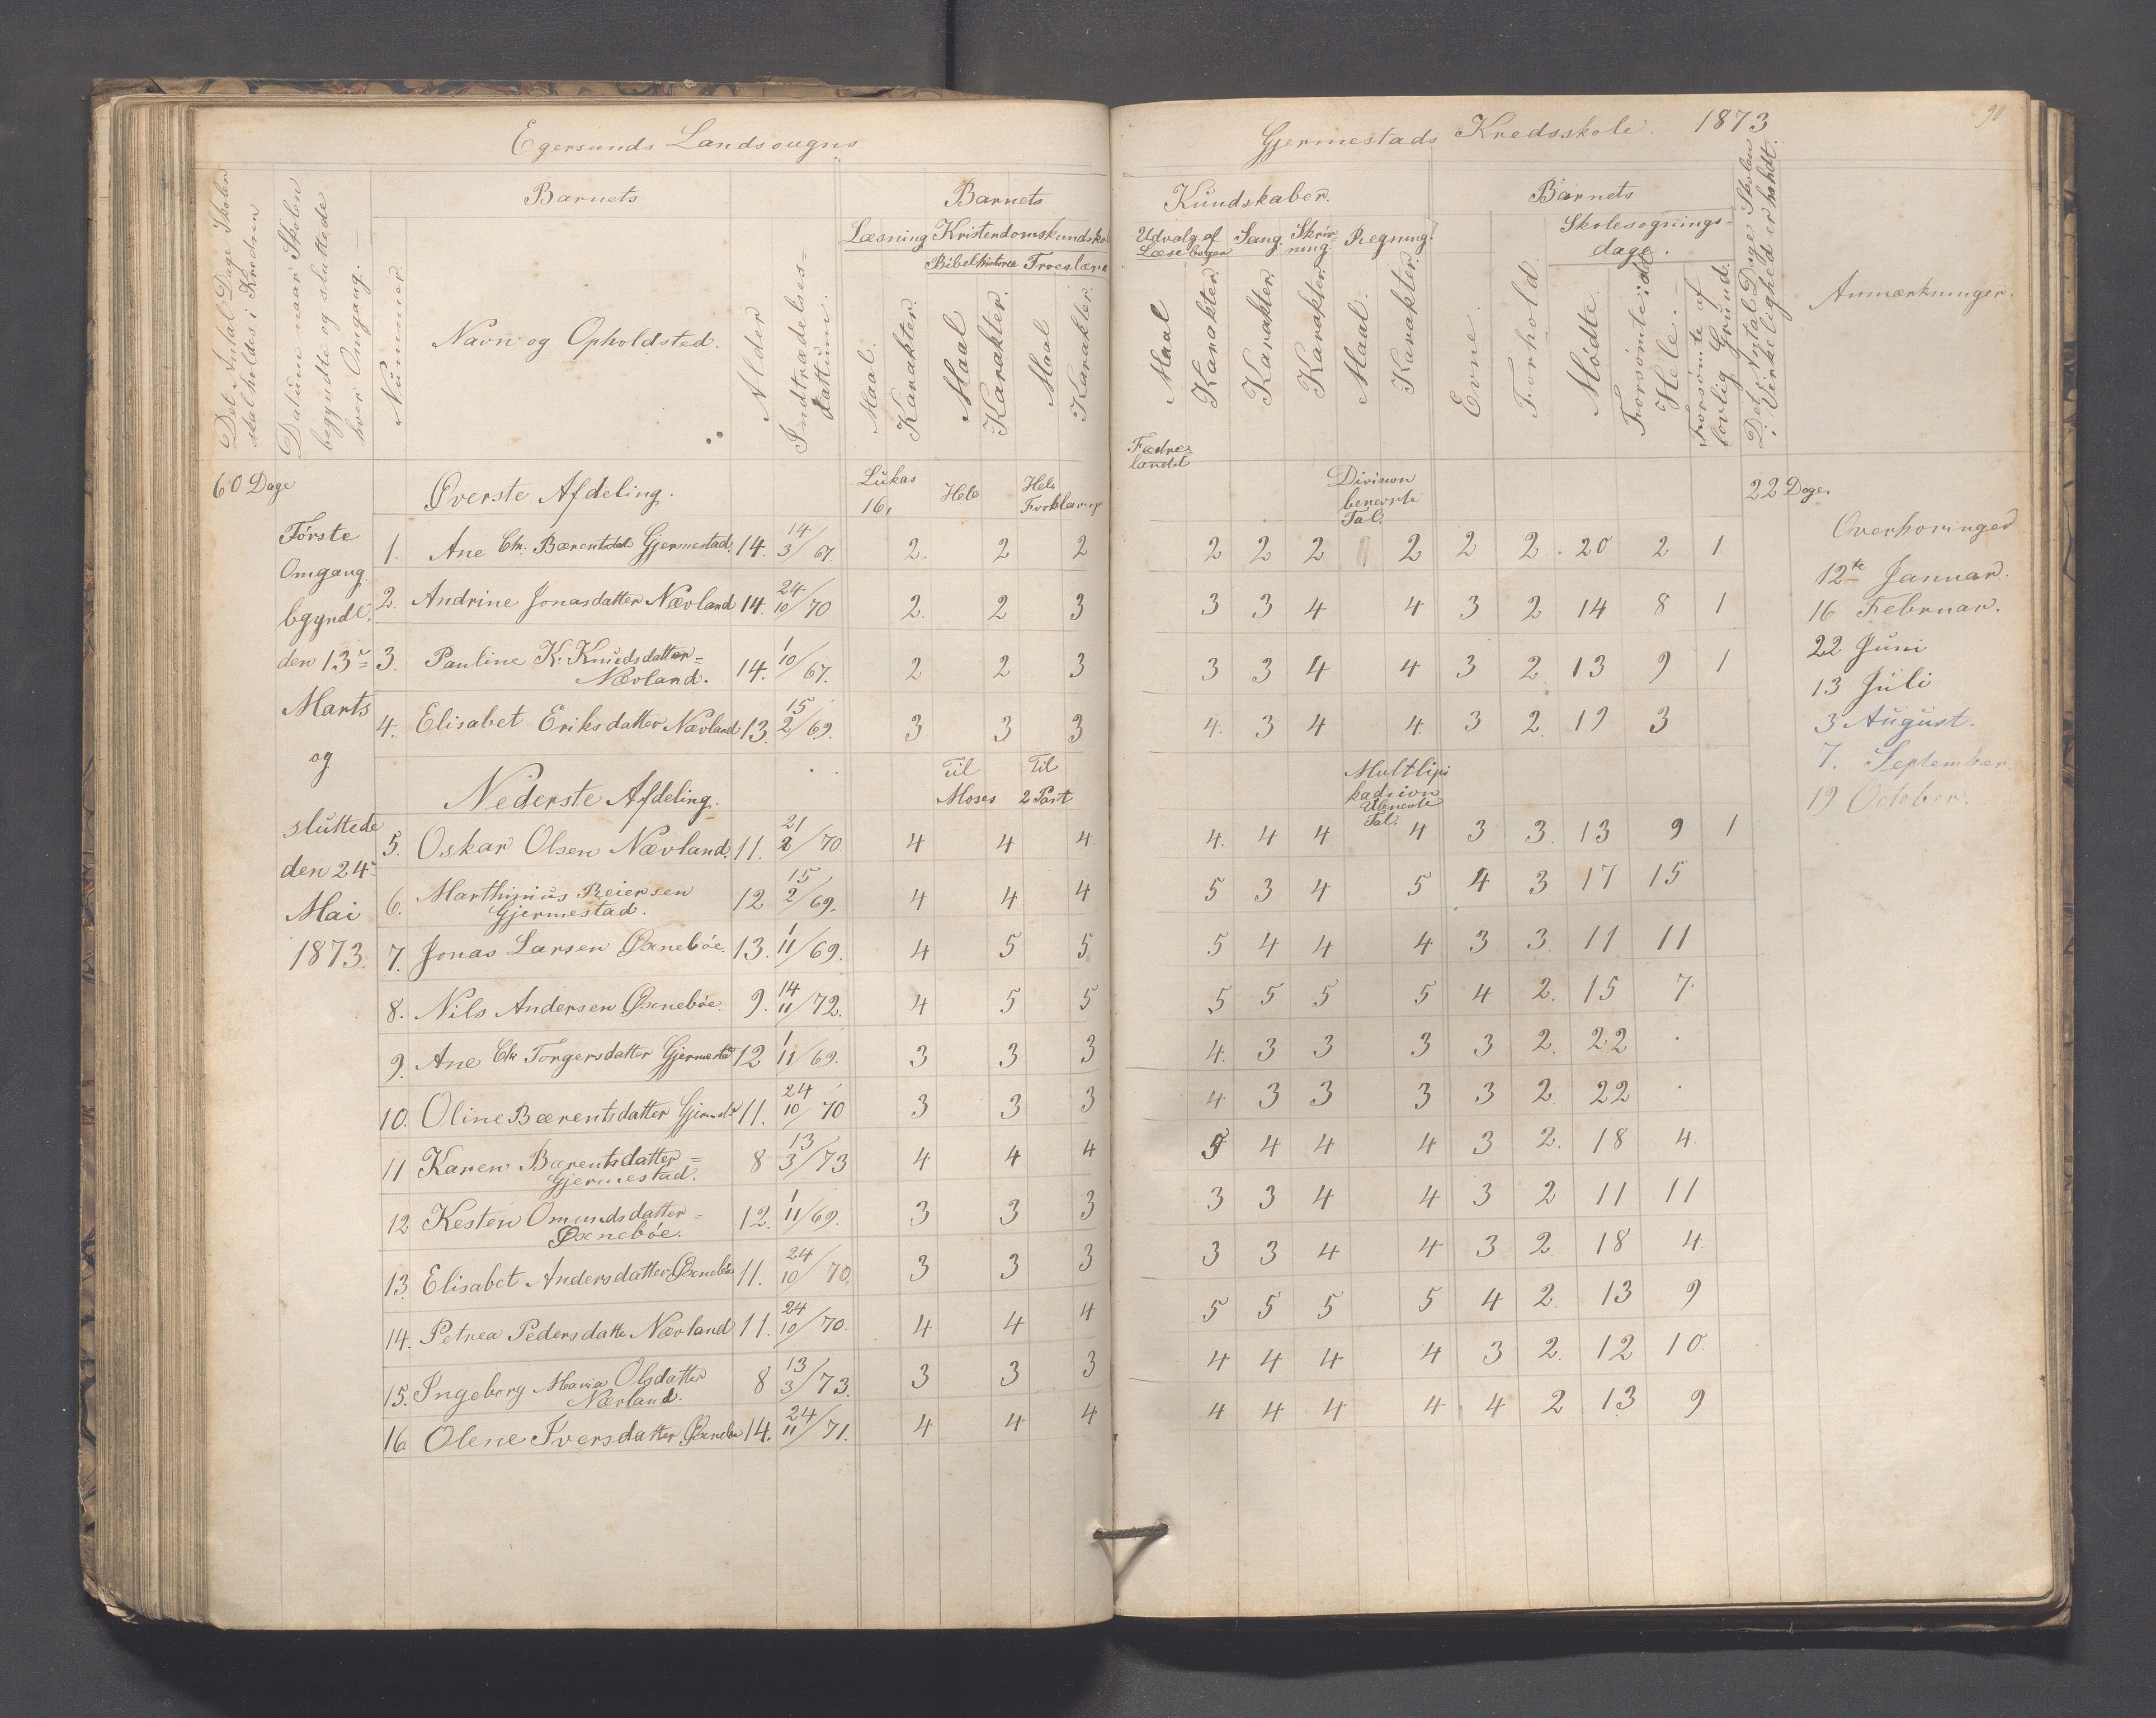 Egersunds Landsougns
Gjermestads Kredsskole. 1873
90
Det Antal Dage Skolen skal holdes i Kredsen
Datum naar Skolen begyndte og sluttede hver Omgang.
Nummer
Barnets
Navn og Opholdsted.
Alder
Indtrædelses=dattum.
Barnets
Læsning Kristendomskundskab
Bibelhistorie Troeslære
Maal. Karakter. Maal Karakter. Maal Karakter.
Kundskaber.
Udvalg af Læsebogen Sang. Skriv=ning. Regning.
Maal Karakter. Karakter. Karakter. Maal. Karakter.
Barnets
Evne. Forhold.
Skolesøgnings=dage.
Mødte. Forsømte: Hele. Forsømte af lovlig Grund.
Det Antal Dage Skolen i Virkelighed er holdt.
Anmærkninger.
60 Dage Øverste Afdeling. Lukas 16, Hele Hele Forklaring Fædre=landet Divisivon benevnte Tal. 22 Dage.
Første Omgang bgyndte. den 13de Marts og sluttede den 24de Mai 1873.
1. Ane Chr. Bærentsdat Gjermestad. 14. 14/3 67. 2. 2 2 2 2 2 2 2 2. 20 2 1
2. Andrine Jonasdatter Nævland 14. 24/10 70 2. 2 3 3 3 4 4 3 2 14 8 1
3. Pauline K. Knudsdatter= Nævland. 14. 1/10 67. 2 2 3 3 3 4 4 3 2. 13 9 1
4. Elisabet Eriksdatter Nævland 13. 15/2 69. 3 3 3 4. 3 4 4. 3 2. 19 3
Nederste Afdeling. Til Moses Til 2 Part Multlipikadsion Ubnevnte Tal.
5. Oskar Olsen Nævland. 11. 21/2 70. 4 4 4. 4. 4 4 4 3 3. 13 9 1
6. Marthinius Reiersen Gjermestad. 12 15/2 69. 4 4 4 5 3 4 5 4 3 17 15
7. Jonas Larsen Øxnebøe. 13. 1/11 69. 4 5 5 5 4 4 4 3 3. 11 11
8. Nils Andersen Øxnebøe. 9. 14/11 72. 4 5 5 5 5 5 5 4 2. 15 7.
9. Ane Chr Torgersdatter Gjermestad 12 1/11 69. 3 3 3 4. 3 3 3 3 2. 22 .
10. Oline Bærentsdatter 11. 24/10 70 3 3 3 4 3 3 3 3 2. 22 .
11 Karen Bærentsdatter= Gjermestad. 8 13/3 73 4 4 4 5 4 4 4 3 2. 18 4.
12 Kesten Omundsdatter= Øxnebøe. 12. 1/11 69. 3 3 3 3 3 4 4 3 2 11 11
13. Elisabet Andersdatter Øxnebøe 11. 24/10 70. 3 3 3 3 3 4 4 3 2. 18 4.
14. Petrea Pedersdatter Nævland 11. 24/10 70. 4 4 4 5 5 5 5 4 2. 13 9
15. Ingeborg Maria Olsdatter Nævland. 8 13/3 73. 3 3 3 4 4 4 4 3 2. 12 10.
16. Olene Iversdatter Øxnebø 14. 24/11 71. 4 4 4 4 4 4 4 4 2 13 9
Overhøringer
12te Januar.
16 Februar.
22 Juni
13 Juli
3 August.
7. September.
19 October.